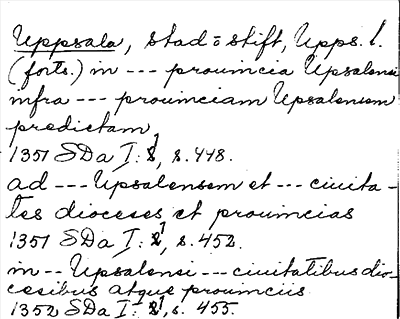 Uppsala, stad o stift, Upps. l.
(forts.) in --- prouincia Upsalensi
infra --- prouinciam Upsalensem
predictam
1351 SDa I: 1, s. 448.
ad --- Upsalensem et --- ciuita-
tes dioceses et prouincias
1351 SDa I: 1, s. 452.
in -- Upsalensi --- ciuitatibus dio-
cesibus atque prouinciis
1352 SDa I: 1, s. 455.